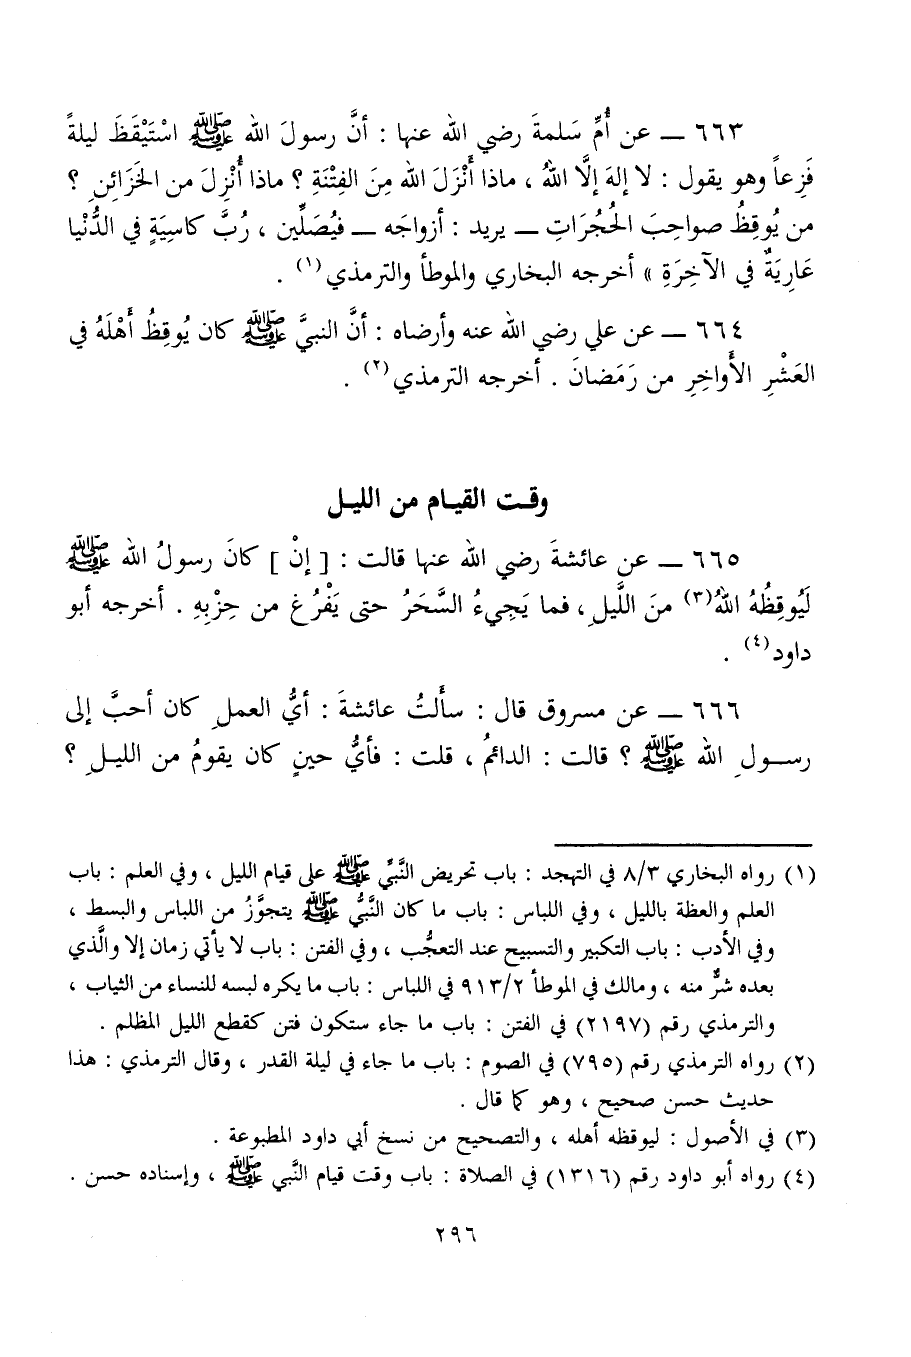 ٦٦٣ ــ عن أُمِّ سَلمةَ رضي الله عنها : أنَّ رسولَ الله ﷺ اسْتَيْقَظَ ليلةً
فَزِعاً وهو يقول : لا إلهَ إلَّا اللهُ ، ماذا أَنْزَلَ الله مِنَ الفِتْنَةِ ؟ ماذا أُنْزِلَ من الخَزائِنِ ؟
من يُوقِظُ صواحِبَ الحُجُرَاتِ ــ يريد : أزواجَه ــ فيُصَلِّين ، رُبَّ كاسِيَةٍ في الدُّنْيا
عَارِيَةٌ في الآخِرَةِ » أخرجه البخاري والموطأ والترمذي(١) .
٦٦٤ ــ عن علي رضي الله عنه وأرضاه : أنَّ النبيَّ ﷺ كان يُوقِظُ أَهْلَهُ في
العَشْرِ الأَواخِرِ من رَمَضانَ . أخرجه الترمذي(٢) .
وقت القيام من الليل
٦٦٥ ــ عن عائشةَ رضي الله عنها قالت : [ إنْ ] كانَ رسولُ الله ﷺ
لَيُوقِظُهُ اللهُ(٣) منَ اللَّيلِ ، فما يَجِيءُ السَّحَرُ حتى يَفْرُغَ من حِزْبِهِ . أخرجه أبو
داود(٤) .
٦٦٦ ــ عن مسروق قال : سأَلتُ عائشةَ : أيُّ العملِ كان أحبَّ إلى
رسولِ الله ﷺ ؟ قالت : الدائمُ ، قلت : فأيُّ حينٍ كان يقومُ من الليلِ ؟
(١) رواه البخاري ٨/٣ في التهجد : باب تحريض النَّبيِّ ﷺ على قيام الليل ، وفي العلم : باب
العلم والعظة بالليل ، وفي اللباس : باب ما كان النَّبيُّ ﷺ يتجوَّزُ من اللباس والبسط ،
وفي الأدب : باب التكبير والتسبيح عند التعجُّب ، وفي الفتن : باب لا يأتي زمان إلا والَّذي
بعده شرٌّ منه ، ومالك في الموطأ ٩١٣/٢ في اللباس : باب ما يكره لبسه للنساء من الثياب ،
والترمذي رقم (٢١٩٧) في الفتن : باب ما جاء ستكون فتن كقطع الليل المظلم .
(٢) رواه الترمذي رقم (٧٩٥) في الصوم : باب ما جاء في ليلة القدر ، وقال الترمذي : هذا
حديث حسن صحيح ، وهو كما قال .
(٣) في الأصول : ليوقظه أهله ، والتصحيح من نسخ أبي داود المطبوعة .
(٤) رواه أبو داود رقم (١٣١٦) في الصلاة : باب وقت قيام النَّبي ﷺ ، وإسناده حسن .
٢٩٦